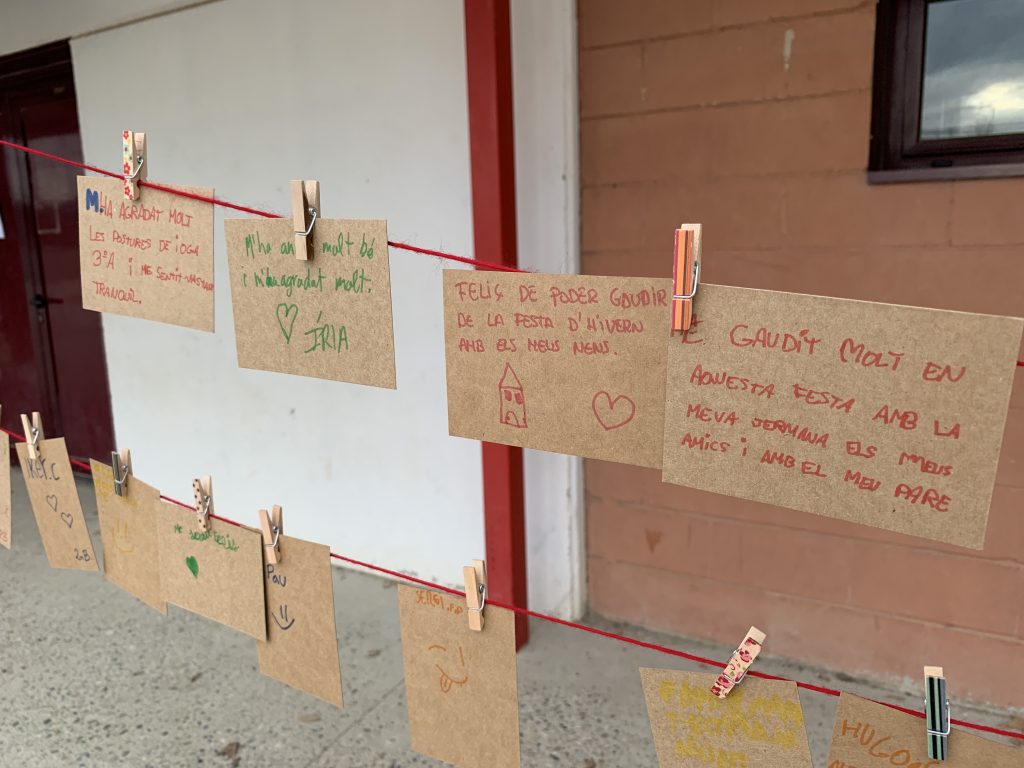 M'HA AGRADAT MOLT
LES POSTURES DE IOGA
3ºA i ME SENTIT
TRANQUIL.
M'ha an molt bé
i m'ha agradat molt.
ÍRIA
FELIÇ DE PODER GAUDIR
DE LA FESTA D'HIVERN
AMB ELS MEUS NENS.
HE GAUDIT MOLT EN
AQUESTA FESTA AMB LA
MEVA JERMANA ELS MEUS
AMICS i AMB EL MEU PARE
2nB
Pau
SERGI
HUGO